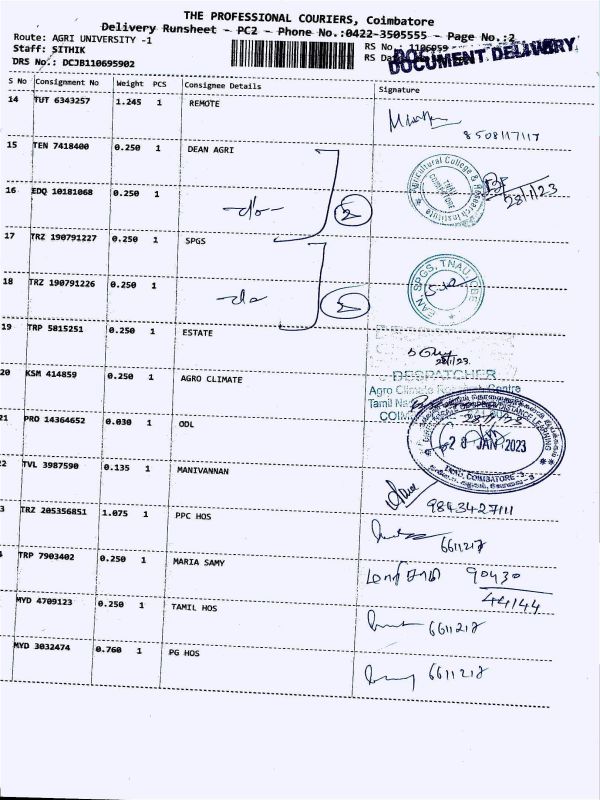 THE PROFESSIONAL COURIERS, Coimbatore
Delivery Runsheet - PC2 - Phone No.:0422-3505555 - Page No.:2
Route: AGRI UNIVERSITY -1
RS No.: 1106959
Staff: SITHIK
RS
DRS No.: DCJB110695902
DOCUMENT DELIVERY
S No Consignment No Weight PCS Consignee Details Signature
14 TUT 6343257 1.245 1 REMOTE
8508117117
15 TEN 7418400 0.250 1 DEAN AGRI
Agricultural College & Research Institute
TNAU COIMBATORE
28/1/23
16 EDQ 10181068 0.250 1 -do- 2
17 TRZ 190791227 0.250 1 SPGS
DEAN, SPGS, TNAU, CBE
18 TRZ 190791226 0.250 1 -do- 2
19 TRP 5815251 0.250 1 ESTATE
28/1/23
20 KSM 414859 0.250 1 AGRO CLIMATE
DESPATCHER
Agro Climate Research Centre
Tamil
21 PRO 14364652 0.030 1 ODL
28 JAN 2023
TNAU, COIMBATORE - 3
22 TVL 3987590 0.135 1 MANIVANNAN
9843427111
3 TRZ 205356851 1.075 1 PPC HOS
6611217
TRP 7903402 0.250 1 MARIA SAMY
மாரி சாமி 90430
44144
MYD 4709123 0.250 1 TAMIL HOS
6611217
MYD 3032474 0.760 1 PG HOS
6611217